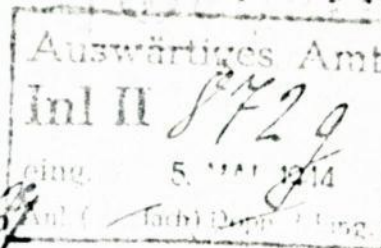 Auswärtiges Amt
Inl II 872 g
eing. 5. MAI 1944
Anl. ( fach) Dopp. d. Eing.